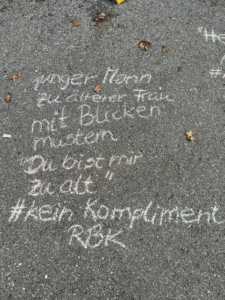 junger Mann
zu älteren Frau
mit Blicken
mustern
"Du bist mir
zu alt"
#kein Kompliment
RBK
"He